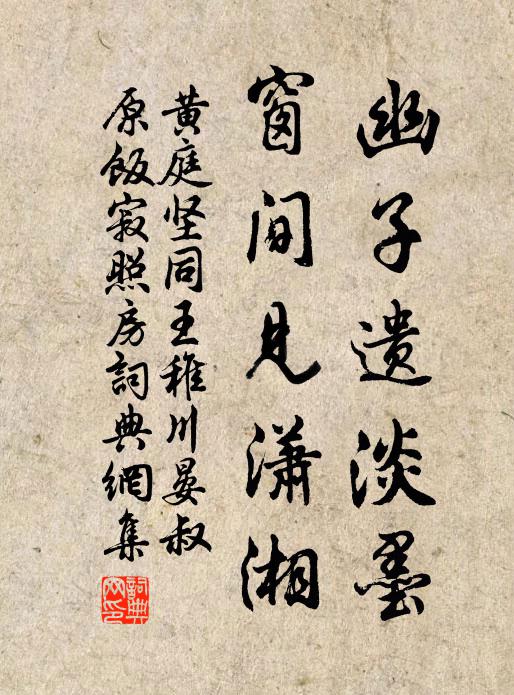 幽子遗淡墨
窗间见潇湘
黄庭坚同王稚川晏叔
原饭寂照房詞典網集
詞典